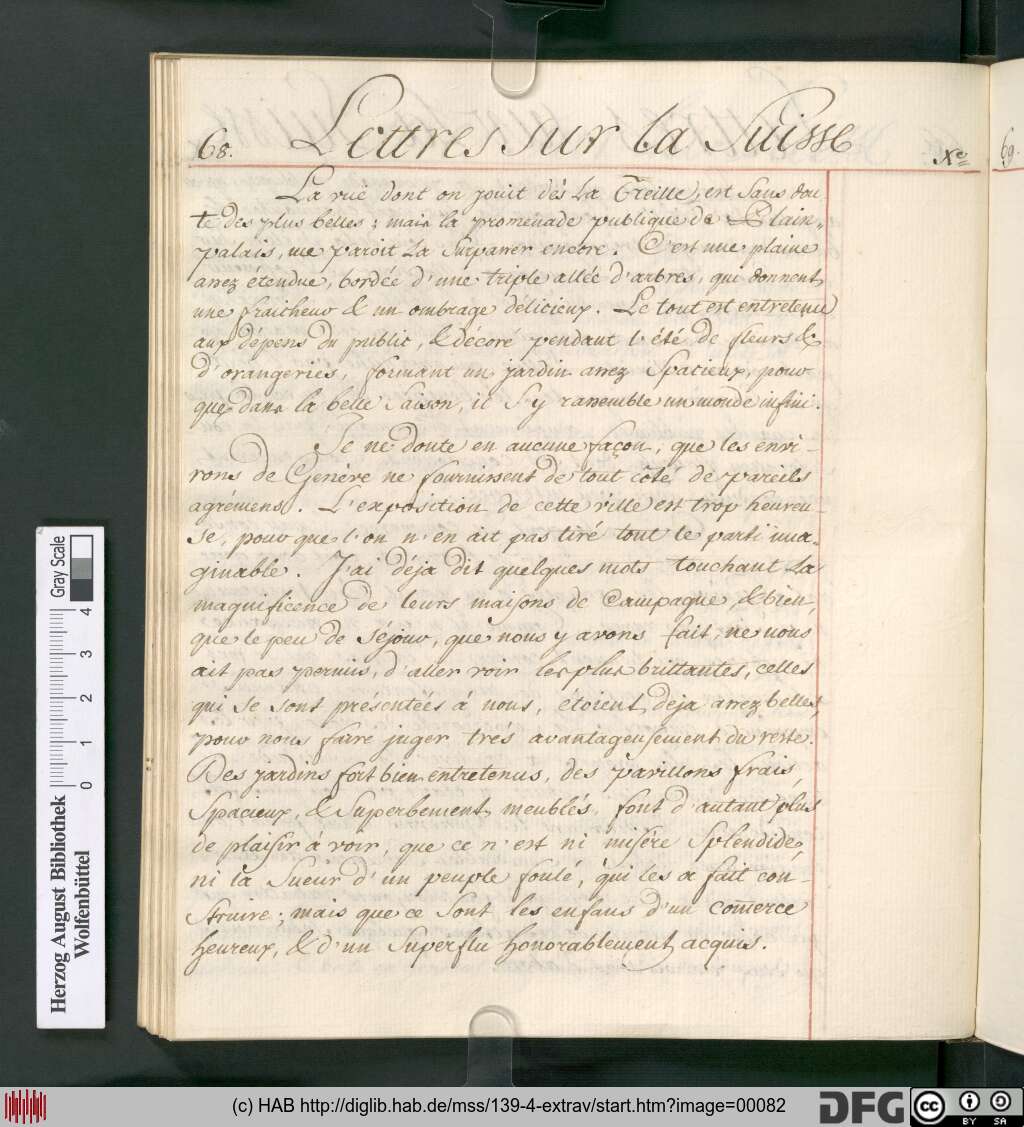 68. Lettres sur la Suisse Xe
La vuë dont on jouit dés La Treille, est sans dou-
te des plus belles; mais la promenade publique de Plain-
palais, me paroit La surpasser encore. C'est une plaine
assez étendue, bordée d'une triple allée d'arbres, qui donnent
une fraicheur & un ombrage délicieux. Le tout est entretenu
aux dépens du public, & décoré pendant l'été de fleurs &
d'orangeries, formant un jardin assez Spatieux, pour
que dans la belle Saison, il s'y rassemble un monde infini.
Je ne doute en aucune façon, que les envi-
rons de Genève ne fournissent de tout côté de pareils
agrémens. L'exposition de cette ville est trop heureu-
se, pour que l'on n'en ait pas tiré tout le parti ima-
ginable. J'ai déja dit quelques mots touchant La
magnificence de leurs maisons de Campagne, & bien,
que le peu de séjour, que nous y avons fait, ne nous
ait pas permis, d'aller voir les plus brillantes, celles
qui se sont présentées à nous, étoient déja assez belles,
pour nous faire juger trés avantageusement du reste.
Des jardins fort bien entretenus, des pavillons frais,
Spacieux, & Superbement meublés, font d'autant plus
de plaisir à voir, que ce n'est ni misére Splendide,
ni la Sueur d'un peuple foulé, qui les a fait con-
struire; mais que ce sont les enfans d'un com̅erce
heureux, & d'un Superflu honorablement acquis.
69.
Herzog August Bibliothek
Wolfenbüttel
0 1 2 3 4
Gray Scale
(c) HAB http://diglib.hab.de/mss/139-4-extrav/start.htm?image=00082
DFG
cc BY SA